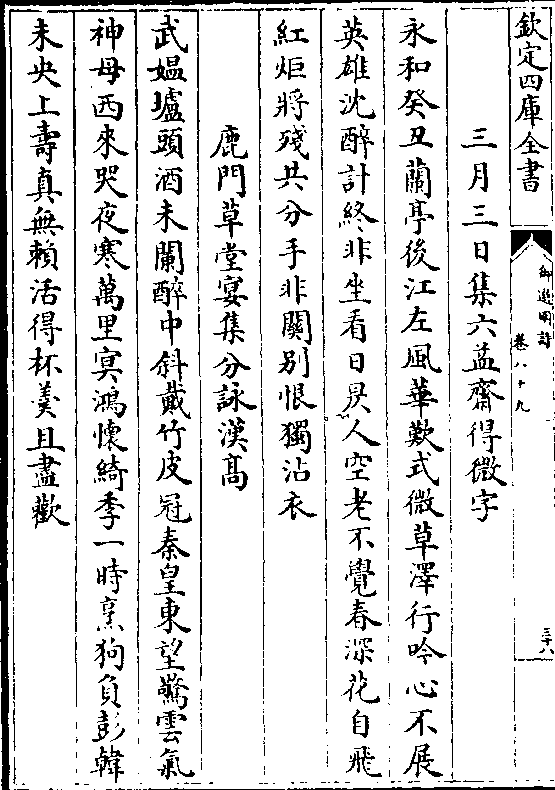 欽定四庫全書
御選明詩
卷八十九
三十八
三月三日集六益齋得微字
永和癸丑蘭亭後江左風華歎式微草澤行吟心不展
英雄沈醉計終非坐看日昃人空老不覺春深花自飛
紅炬將殘共分手非關别恨獨沾衣
鹿門草堂宴集分詠漢髙
武媪壚頭酒未闌醉中斜戴竹皮冠秦皇東望驚雲氣
神母西來哭夜寒萬里冥鴻懷綺季一時烹狗負彭韓
未央上壽真無賴活得杯羮且盡歡